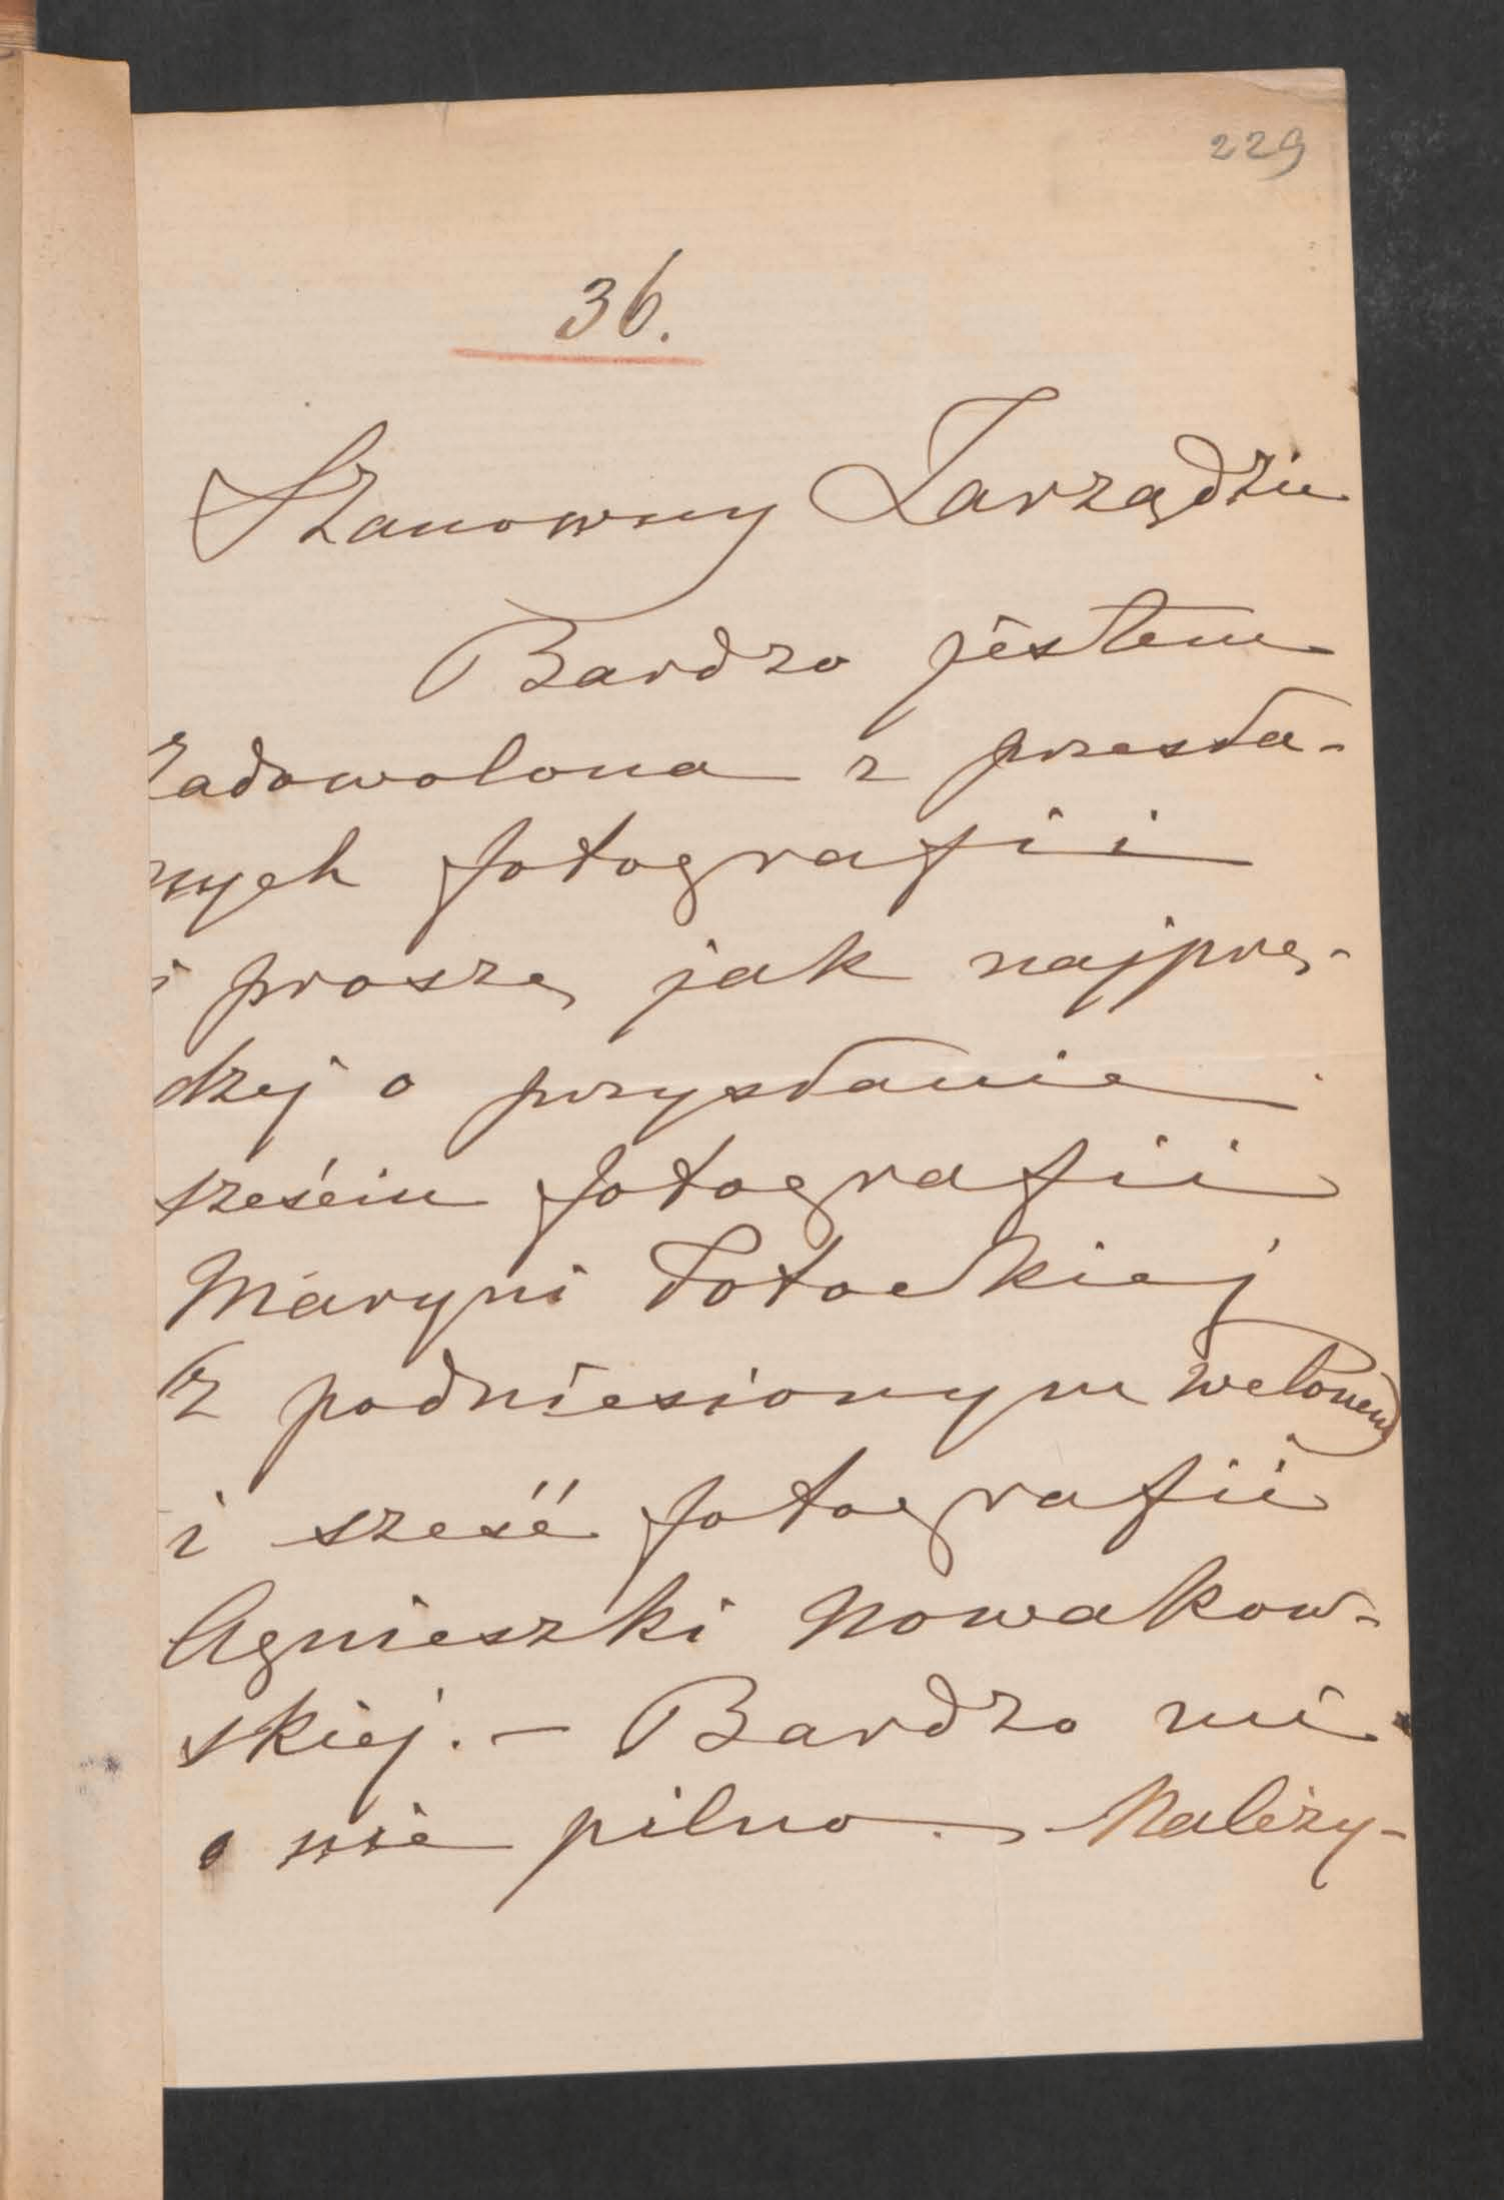 229
36.
Szanowny Zarządzie
Bardzo jestem
zadowolona z przesła-
nych fotografii
i proszę jak najprę-
dzej o przysłanie
sześciu fotografii
Maryni Potockiej
(z podniesionym welonem)
i sześć fotografii
Agnieszki Nowakow-
skiej. — Bardzo mi
o nie pilno. Należy-